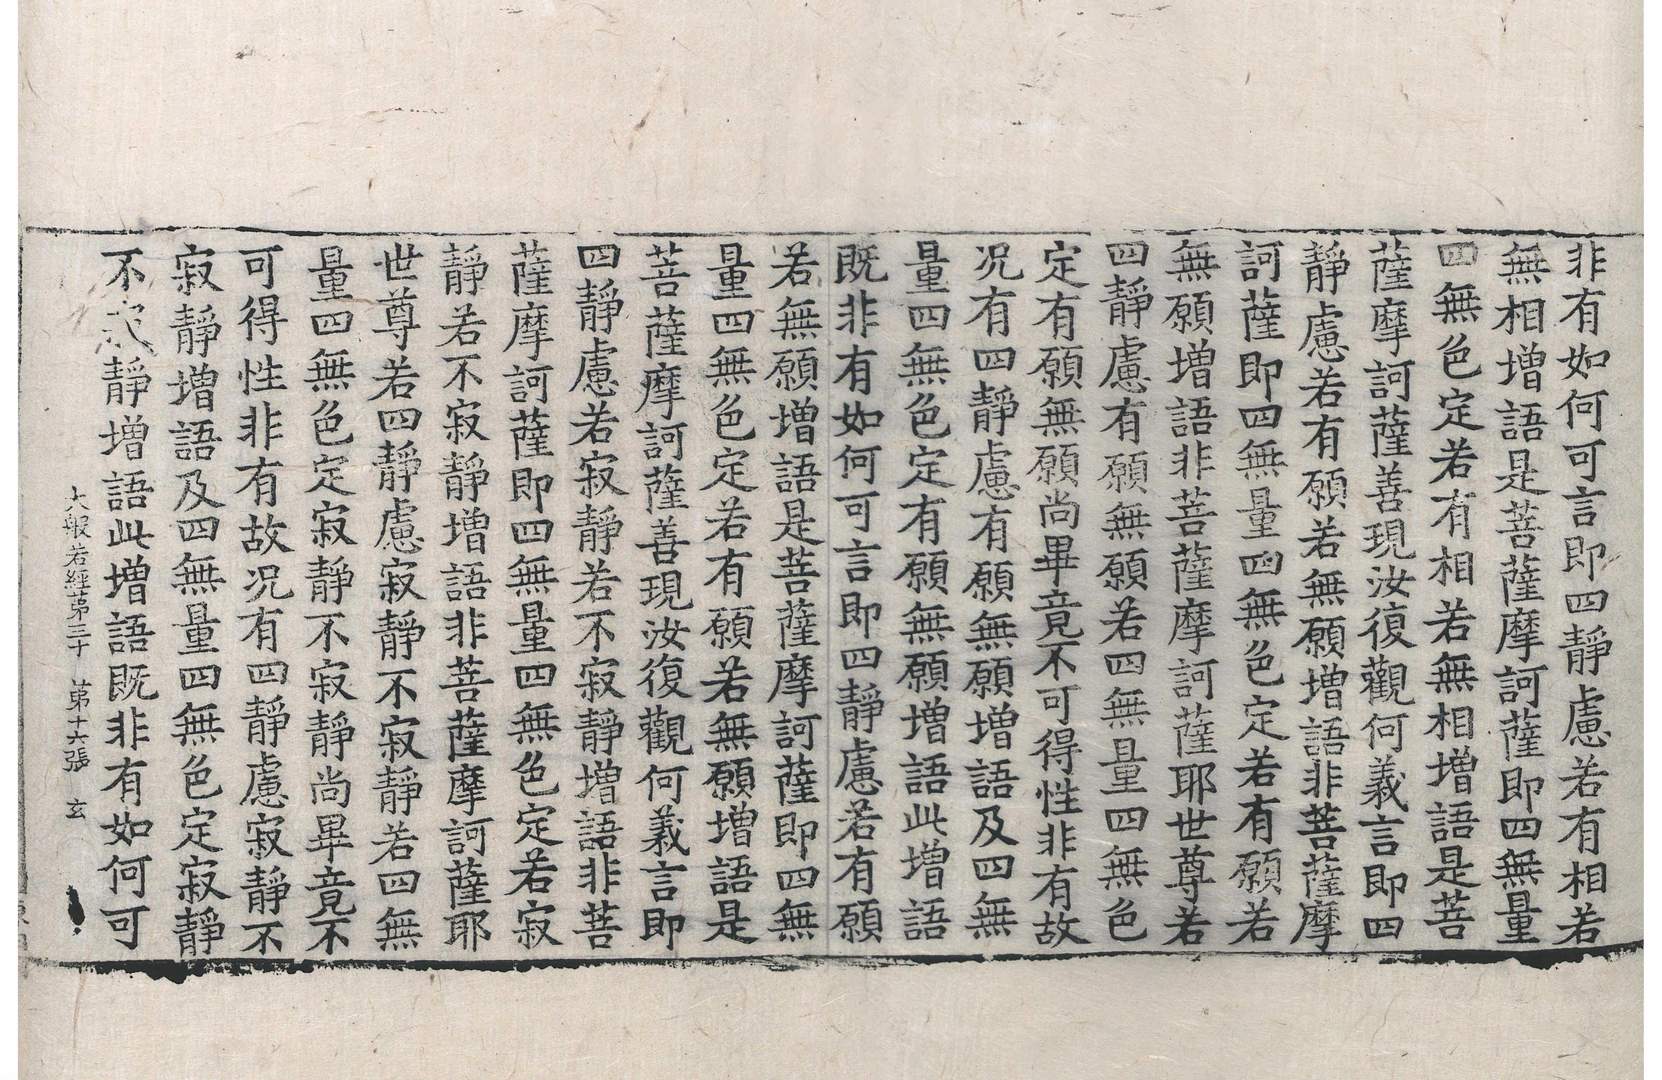 非有如何可言即四靜慮若有相若
無相增語是菩薩摩訶薩即四無量
四無色定若有相若無相增語是菩
薩摩訶薩善現汝復觀何義言即四
靜慮若有願若無願增語非菩薩摩
訶薩即四無量四無色定若有願若
無願增語非菩薩摩訶薩耶世尊若
四靜慮有願無願若四無量四無色
定有願無願尚畢竟不可得性非有故
况有四靜慮有願無願增語及四無
量四無色定有願無願增語此增語
既非有如何可言即四靜慮若有願
若無願增語是菩薩摩訶薩即四無
量四無色定若有願若無願增語是
菩薩摩訶薩善現汝復觀何義言即
四靜慮若寂靜若不寂靜增語非菩
薩摩訶薩即四無量四無色定若寂
靜若不寂靜增語非菩薩摩訶薩耶
世尊若四靜慮寂靜不寂靜若四無
量四無色定寂靜不寂靜尚畢竟不
可得性非有故况有四靜慮寂靜不
寂靜增語及四無量四無色定寂靜
不寂靜增語此增語既非有如何可
大般若經第三十 第十六張 玄